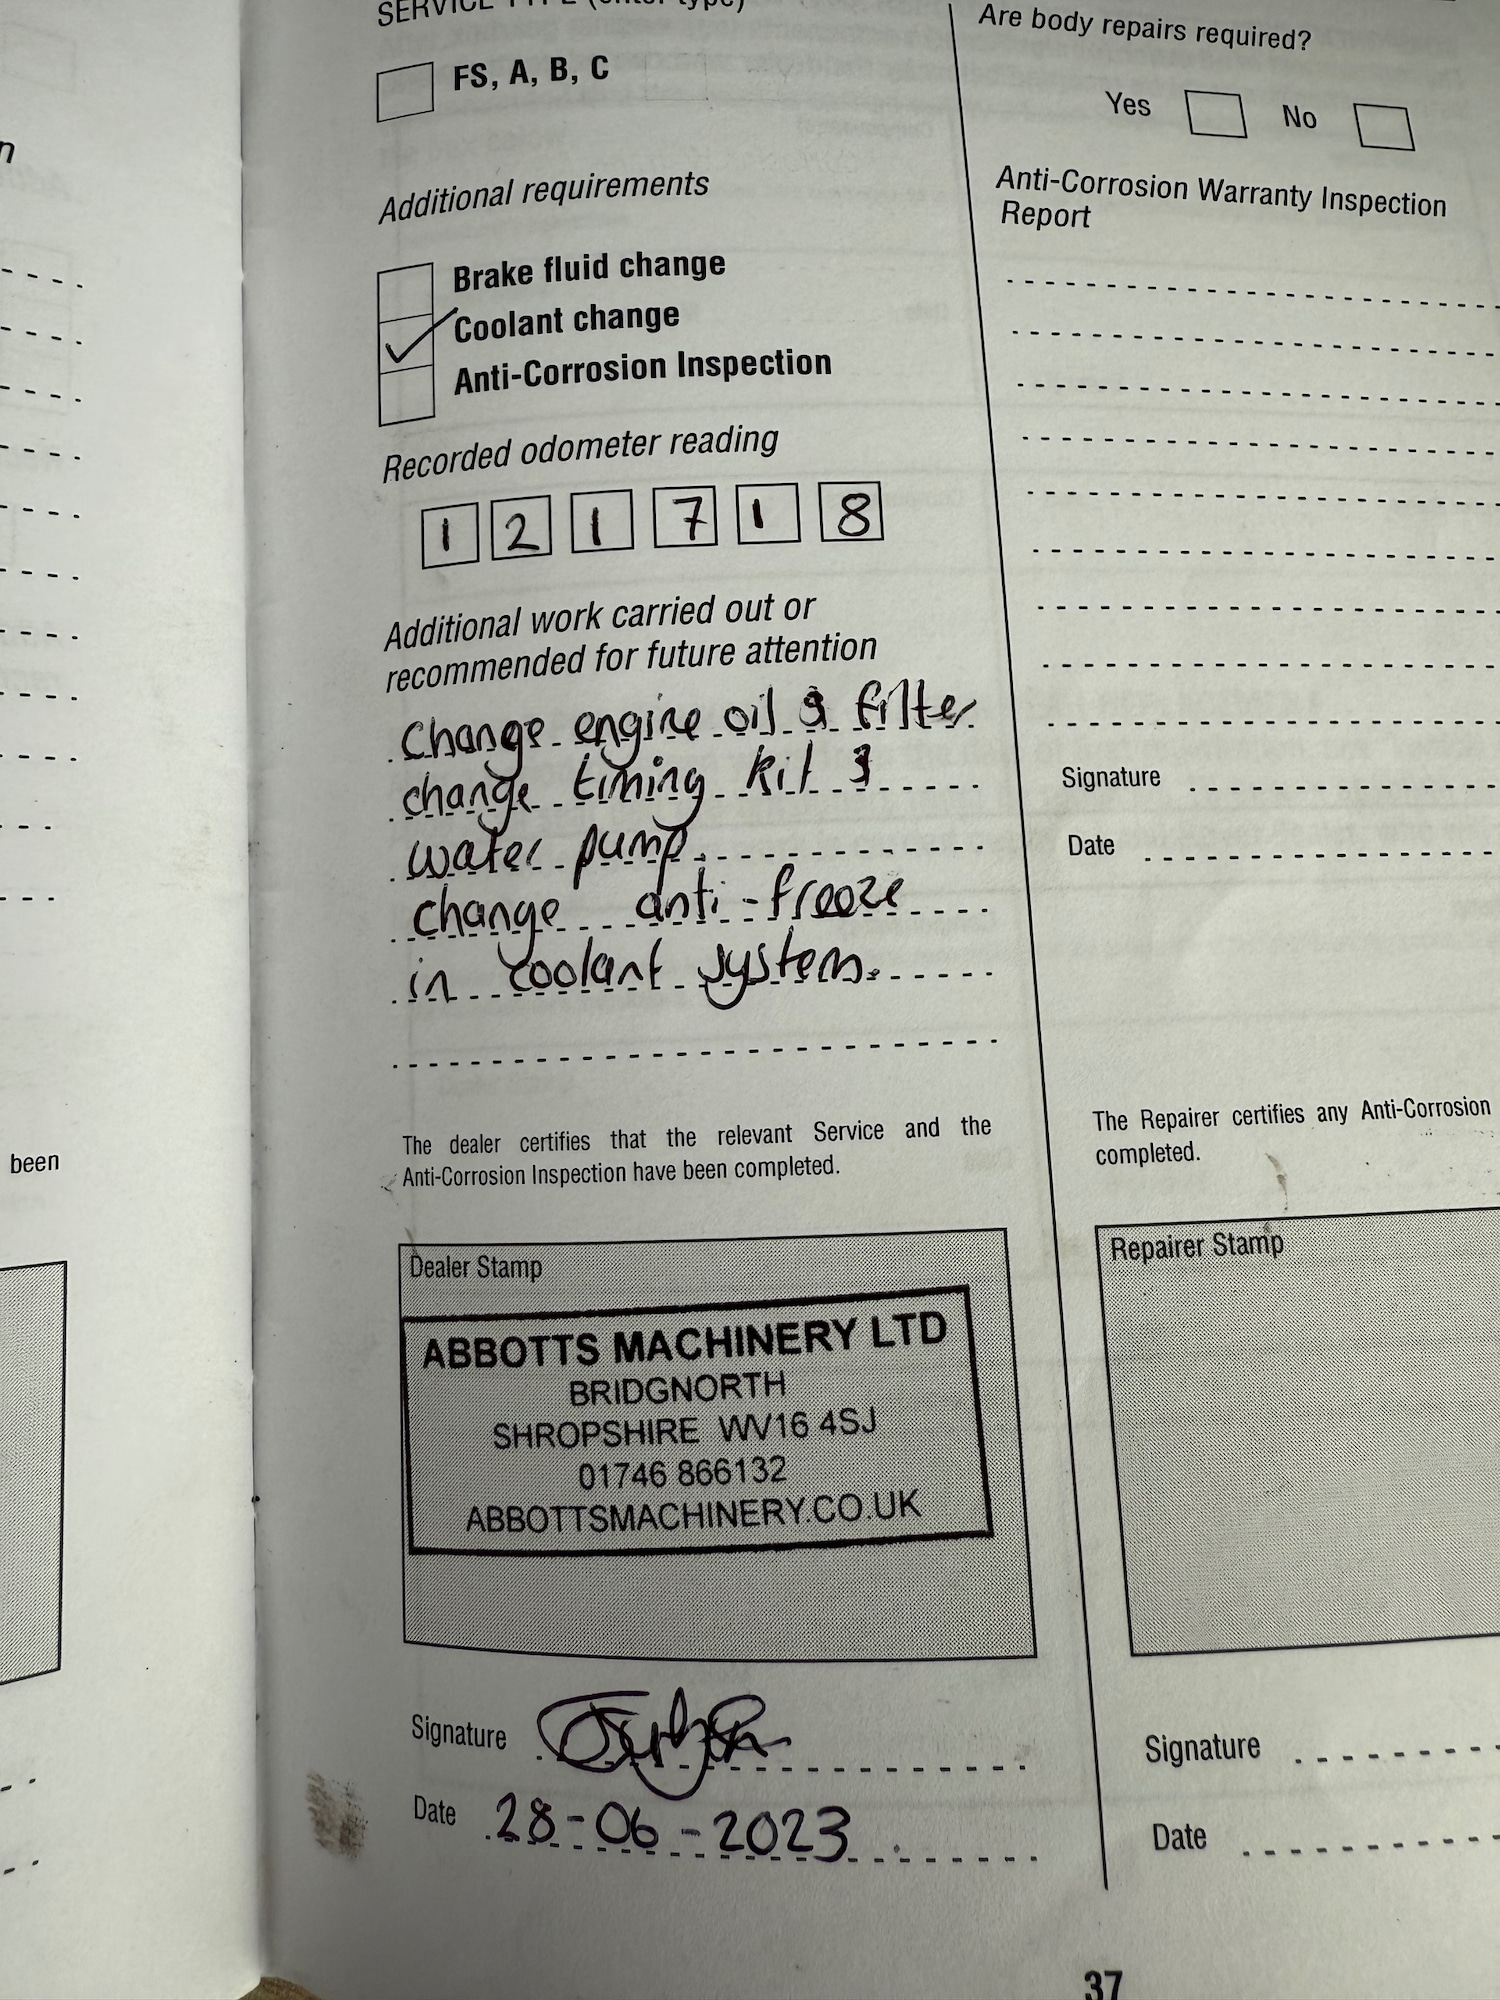 SERVICE TYPE (enter type)
FS, A, B, C
Additional requirements
Brake fluid change
Coolant change
Anti-Corrosion Inspection
Recorded odometer reading
1 2 1 7 1 8
Additional work carried out or
recommended for future attention
change engine oil & filter
change timing kit &
water pump.
change anti-freeze
in coolant system.
The dealer certifies that the relevant Service and the
Anti-Corrosion Inspection have been completed.
Dealer Stamp
ABBOTTS MACHINERY LTD
BRIDGNORTH
SHROPSHIRE WV16 4SJ
01746 866132
ABBOTTSMACHINERY.CO.UK
Signature
Date 28-06-2023
Are body repairs required?
Yes No
Anti-Corrosion Warranty Inspection
Report
Signature
Date
The Repairer certifies any Anti-Corrosion
completed.
Repairer Stamp
Signature
Date
37
been